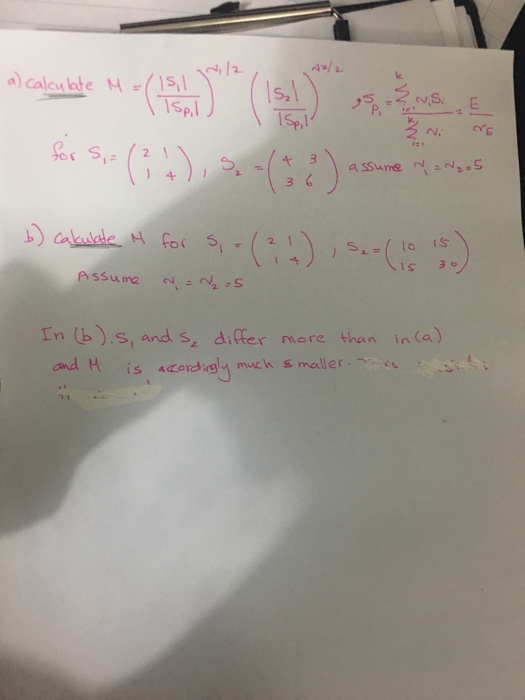 a) calculate M = (|S₁| / |Sₚ,|)^(ν₁/2) (|S₂| / |Sₚ,|)^(ν₂/2) , Sₚ, = Σᵢ₌₁ᵏ νᵢSᵢ / Σᵢ₌₁ᵏ νᵢ = E / νE
for S₁ = (2 1; 1 4), S₂ = (4 3; 3 6) assume ν₁ = ν₂ = 5
b) Calculate M for S₁ = (2 1; 1 4), S₂ = (10 15; 15 30)
Assume ν₁ = ν₂ = 5
In (b). S₁ and S₂ differ more than in (a)
and M is accordingly much smaller.